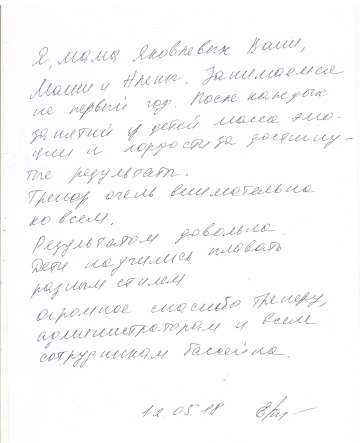 Я, мама Яковлевых Вани,
Маши и Арены. Занимаемся
не первый год. После каждых
занятий у детей масса эмо-
ции и гордости за достигну-
тые результаты.
Тренер очень внимательна
ко всем.
Результатом довольна.
Дети научились плавать
разным стилем
огромное спасибо тренеру,
администраторам и всем
сотрудникам бассейна.
12 05 18